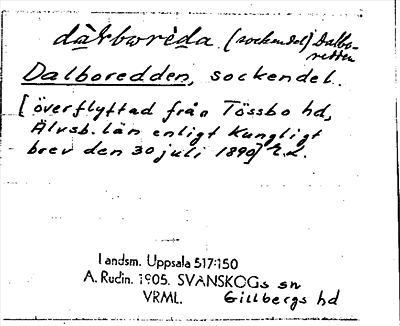 dàlborèda (sockendel) Dalbo-
redden
Dalboredden, sockendel.
[överflyttad från Tössbo hd,
Älvsb. län enligt Kungligt
brev den 30 juli 1890] E.L.
Landsm. Uppsala 517:150
A. Rudin. 1905. SVANSKOGs sn
VRML. Gillbergs hd